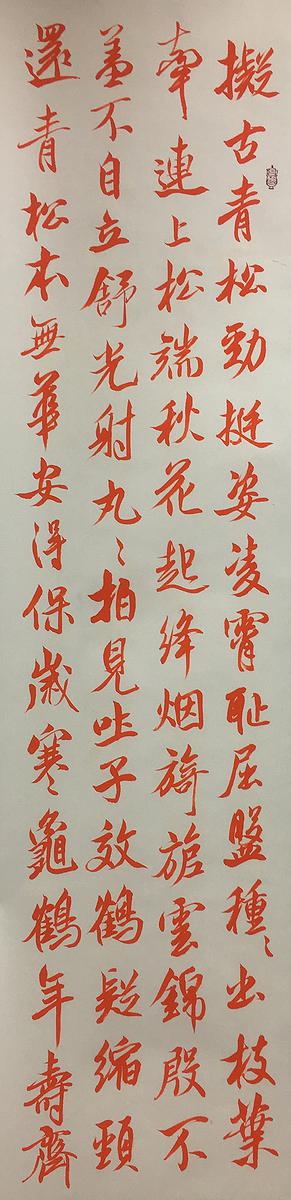 擬古青松勁挺姿凌霄耻屈盤種〻出枝葉
牽連上松端秋花起絳烟旖旎雲錦殷不
羞不自立舒光射丸〻柏見吐子效鶴疑縮頸
還青松本無華安得保歲寒龜鶴年壽齊